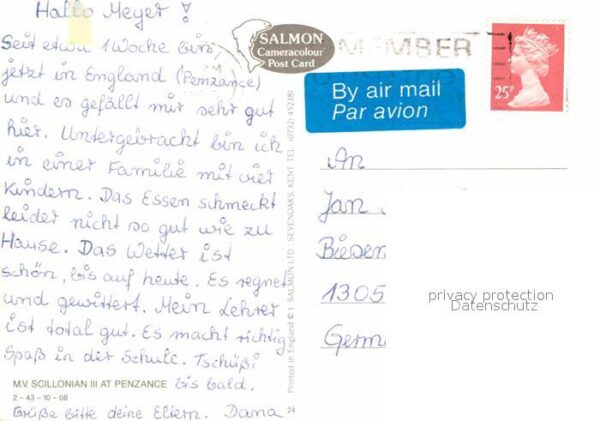 Hallo Meyer!
Seit etwa 1 Woche bin
jetzt in England (Penzance)
und es gefällt mir sehr gut
hier. Untergebracht bin ich
in einer Familie mit vier
Kindern. Das Essen schmeckt
leider nicht so gut wie zu
Hause. Das Wetter ist
schön, bis auf heute. Es regnet
und gewittert. Mein Lehrer
ist total gut. Es macht richtig
Spaß in der Schule. Tschüßi
bis bald.
Grüße bitte deine Eltern. Dana
M.V. SCILLONIAN III AT PENZANCE
2 - 43 - 10 - 08
24
Printed in England © J. SALMON LTD. SEVENOAKS, KENT TEL. (0732) 452381
SALMON
Cameracolour
Post Card
MEMBER
25P
By air mail
Par avion
An
Jan
Bieser
1305
Germ
privacy protection
Datenschutz